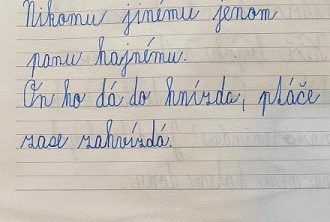 Nikomu jinému jenom
panu hajnému.
On ho dá do hnízda, ptáče
zase zahvízdá.